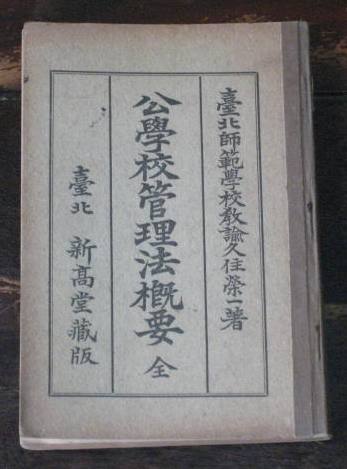 臺北師範學校教諭久住榮一著
公學校管理法概要 全
臺北 新高堂藏版